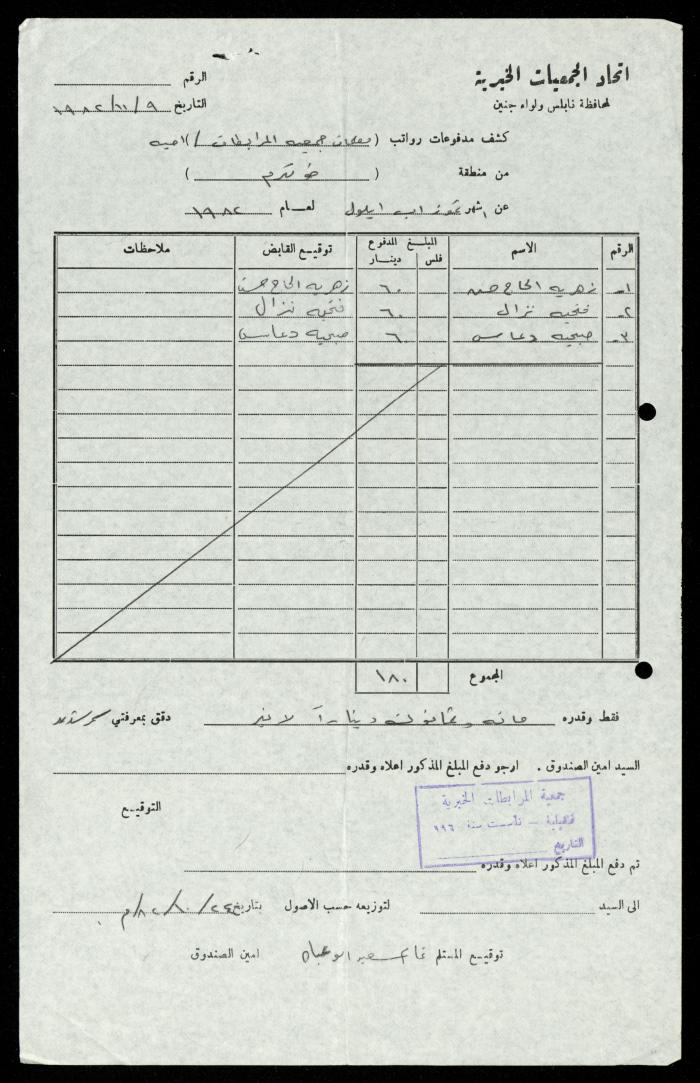 اتحاد الجمعيات الخيرية
لمحافظة نابلس ولواء جنين
الرقم
التاريخ ١٩٨٢/١١/٩
كشف مدفوعات رواتب (معلمات جمعيه المرابطات / اميه
من منطقة ( ط كرم )
عن اشهر تموز اب ايلول لعام ١٩٨٢
الرقم الاسم المبلغ المدفوع توقيع القابض ملاحظات
فلس دينار
١- زهريه الحاج حسن ٦٠ زهريه الحاج حسن
٢- فتحيه نزال ٦٠ فتحيه نزال
٣- صبحيه دعاس ٦٠ صبحيه دعاس
المجموع ١٨٠
فقط وقدره مائه وثمانون دينارآ لا غير دقق بمعرفتي
السيد امين الصندوق . ارجو دفع المبلغ المذكور اعلاه وقدره
التوقيع
جمعية المرابطات الخيرية
قلقيلية - تأسست سنة ١٩٦
التاريخ
تم دفع المبلغ المذكور اعلاه وقدره
الى السيد لتوزيعه حسب الاصول بتاريخ ٨٢/١٠/٢٤م
توقيع المستلم امين الصندوق